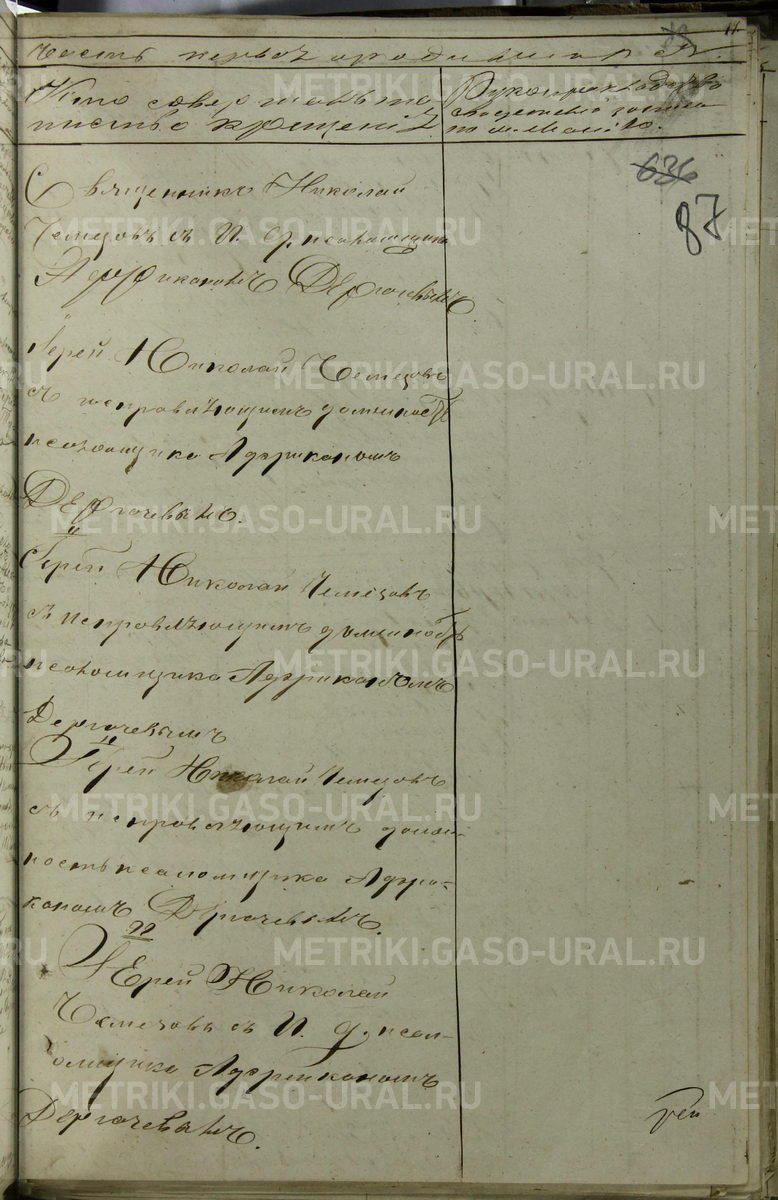 11
Часть первая о родившихся.
Кто совершалъ та
инство крещенія.
Рукоприкладство
свидетелей записи
по желанію.
636
87
Священникъ Николай
Чемезовъ съ И. д. псаломщика
Адрриканомъ Дергачевымъ.
Іерей Николай Чемезовъ
съ исправляющимъ должность
псаломщика Адрриканомъ
Дергачевымъ.
Іерей Николай Чемезовъ
съ исправляющимъ должность
псаломщика Адрриканомъ
Дергачевымъ
Іерей Николай Чемезовъ
съ исправляющимъ долж-
ность псаломщика Адрри-
каномъ Дергачевымъ.
Іерей Николай
Чемезовъ съ И. д. псал-
омщика Адрриканомъ
Дергачевымъ.
METRIKI.GASO-URAL.RU